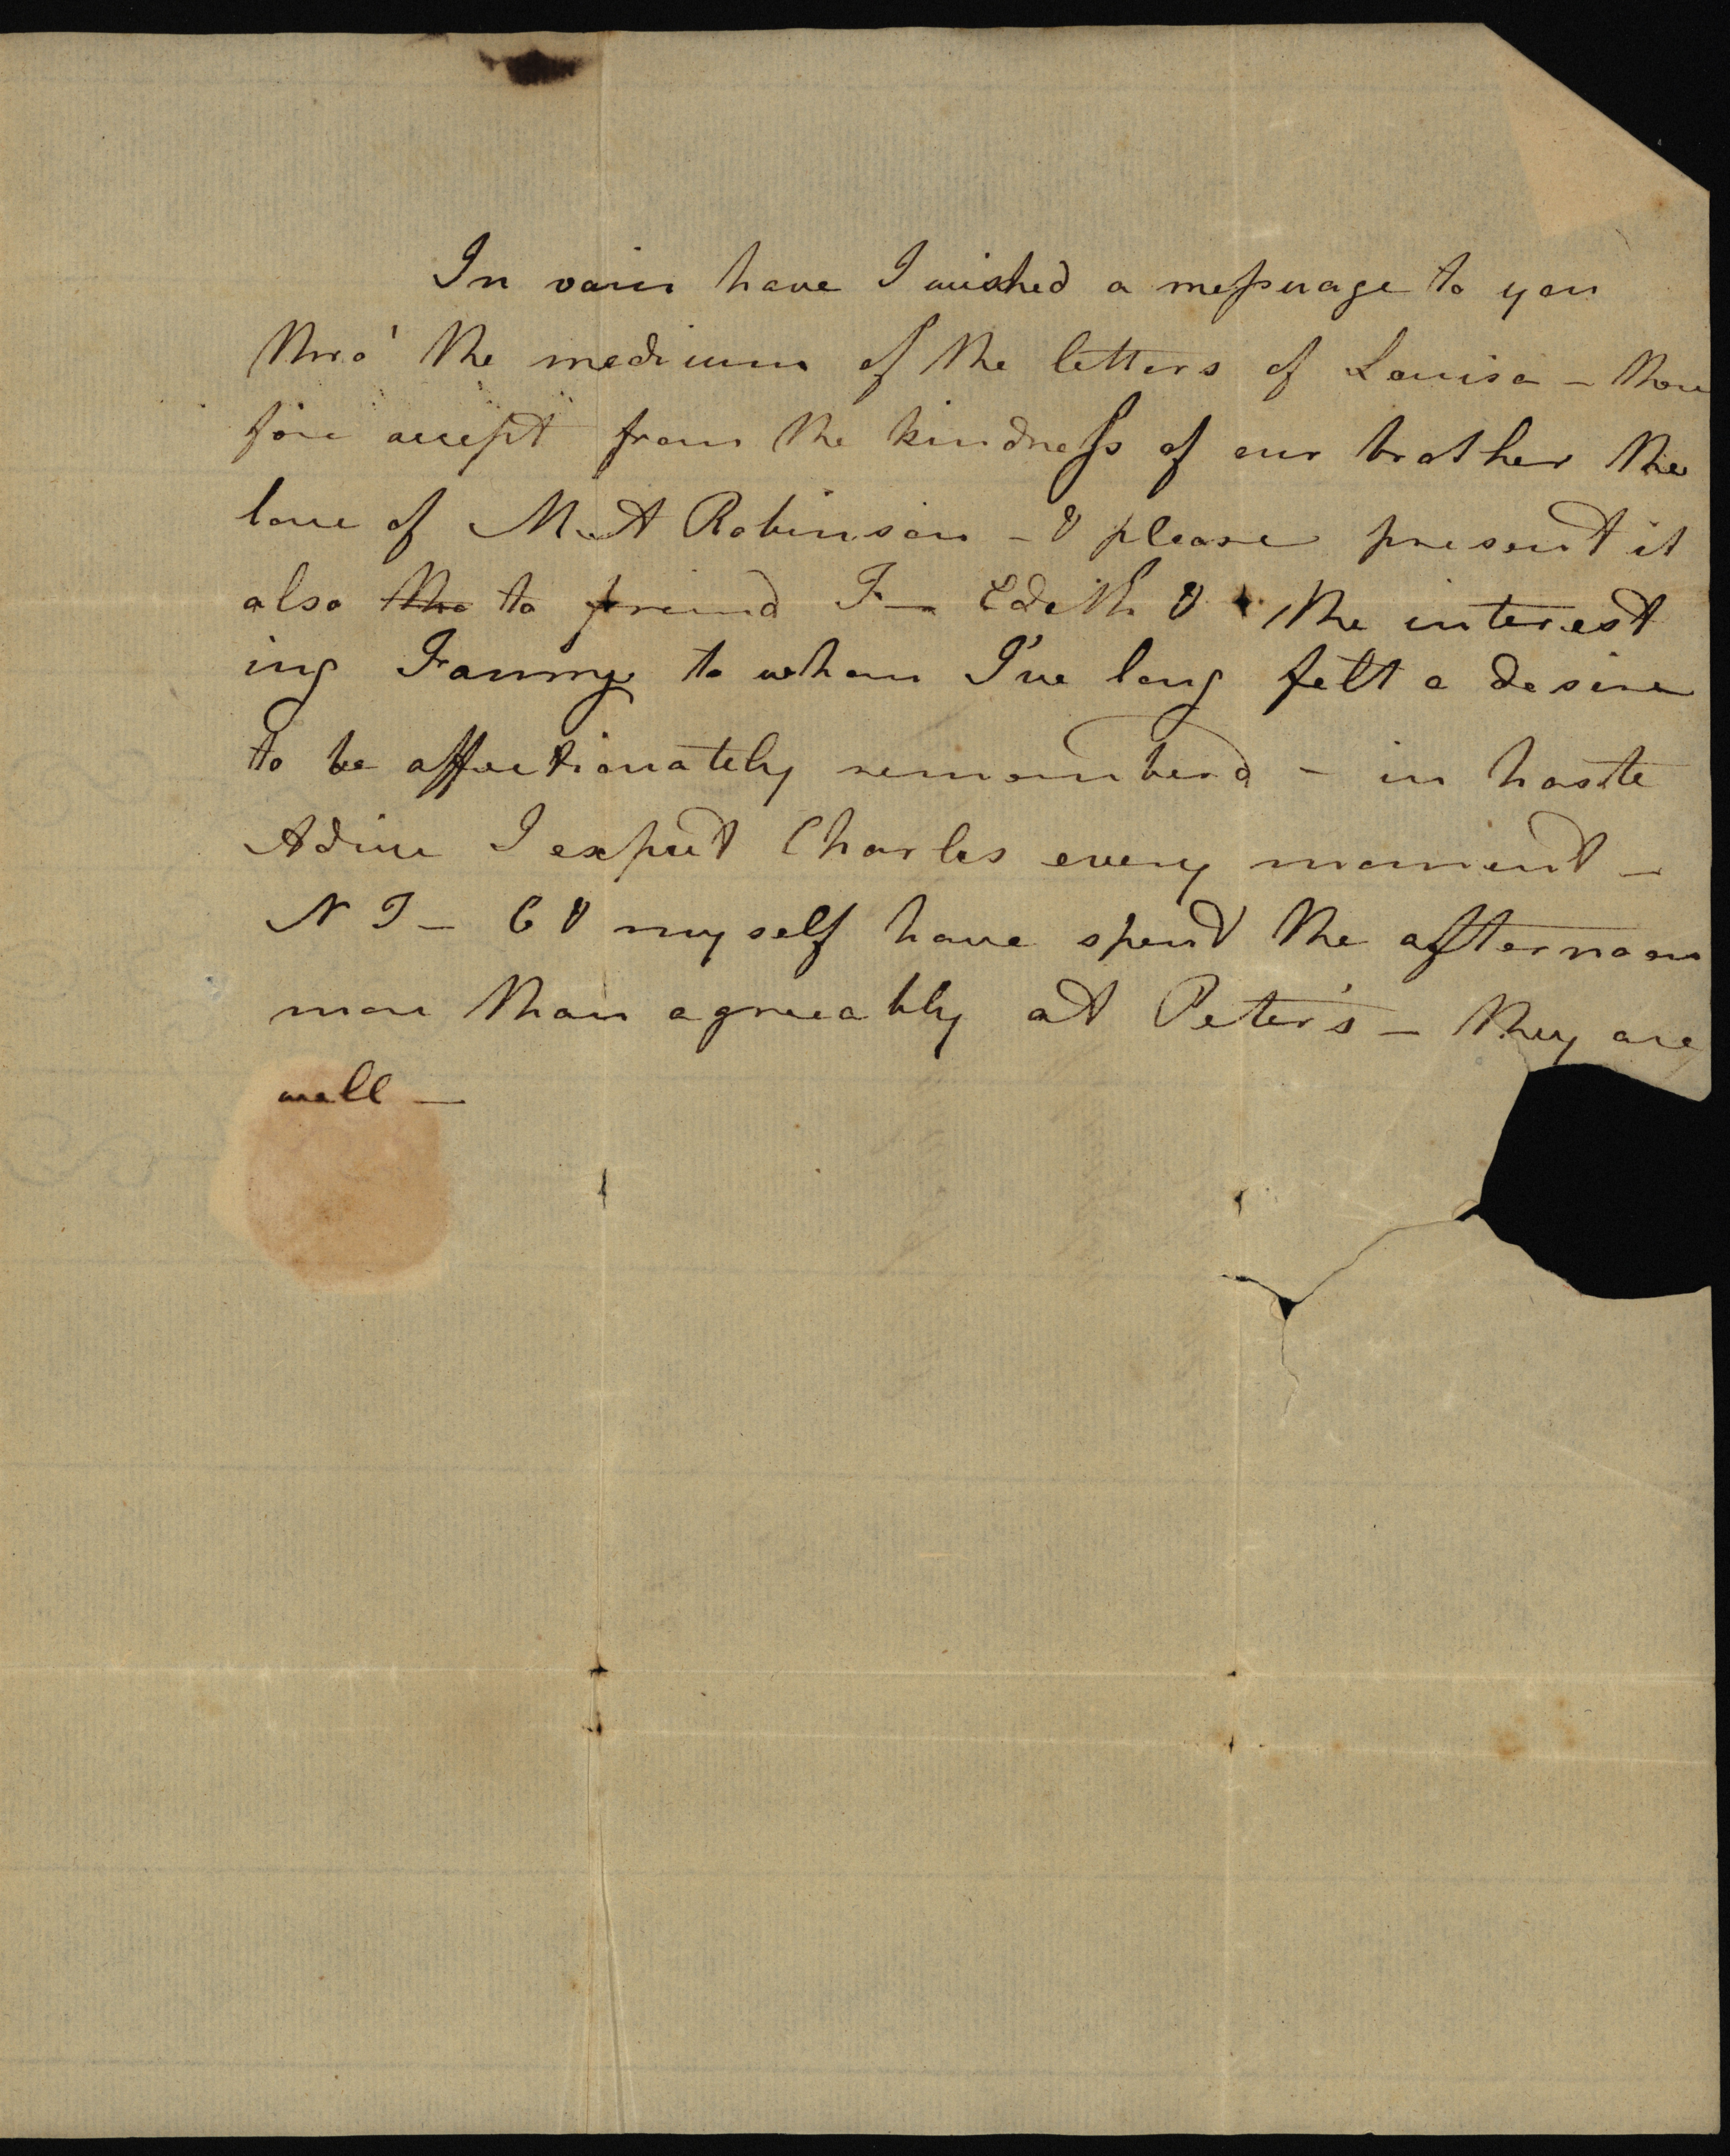 In vain have I wished a messuage to you
thro' the medium of the letters of Louisa - there
fore accept from the kindness of our brother the
love of M. A Robinson - & please present it
also the to freind F— Edith & the interest
ing Fanny to whom I've long felt a desire
to be affectionately rememberd - in haste
Adieu I expect Charles every moment -
N T - C & myself have spent the afternoon
more than agreeably at Peter's - they are
well —